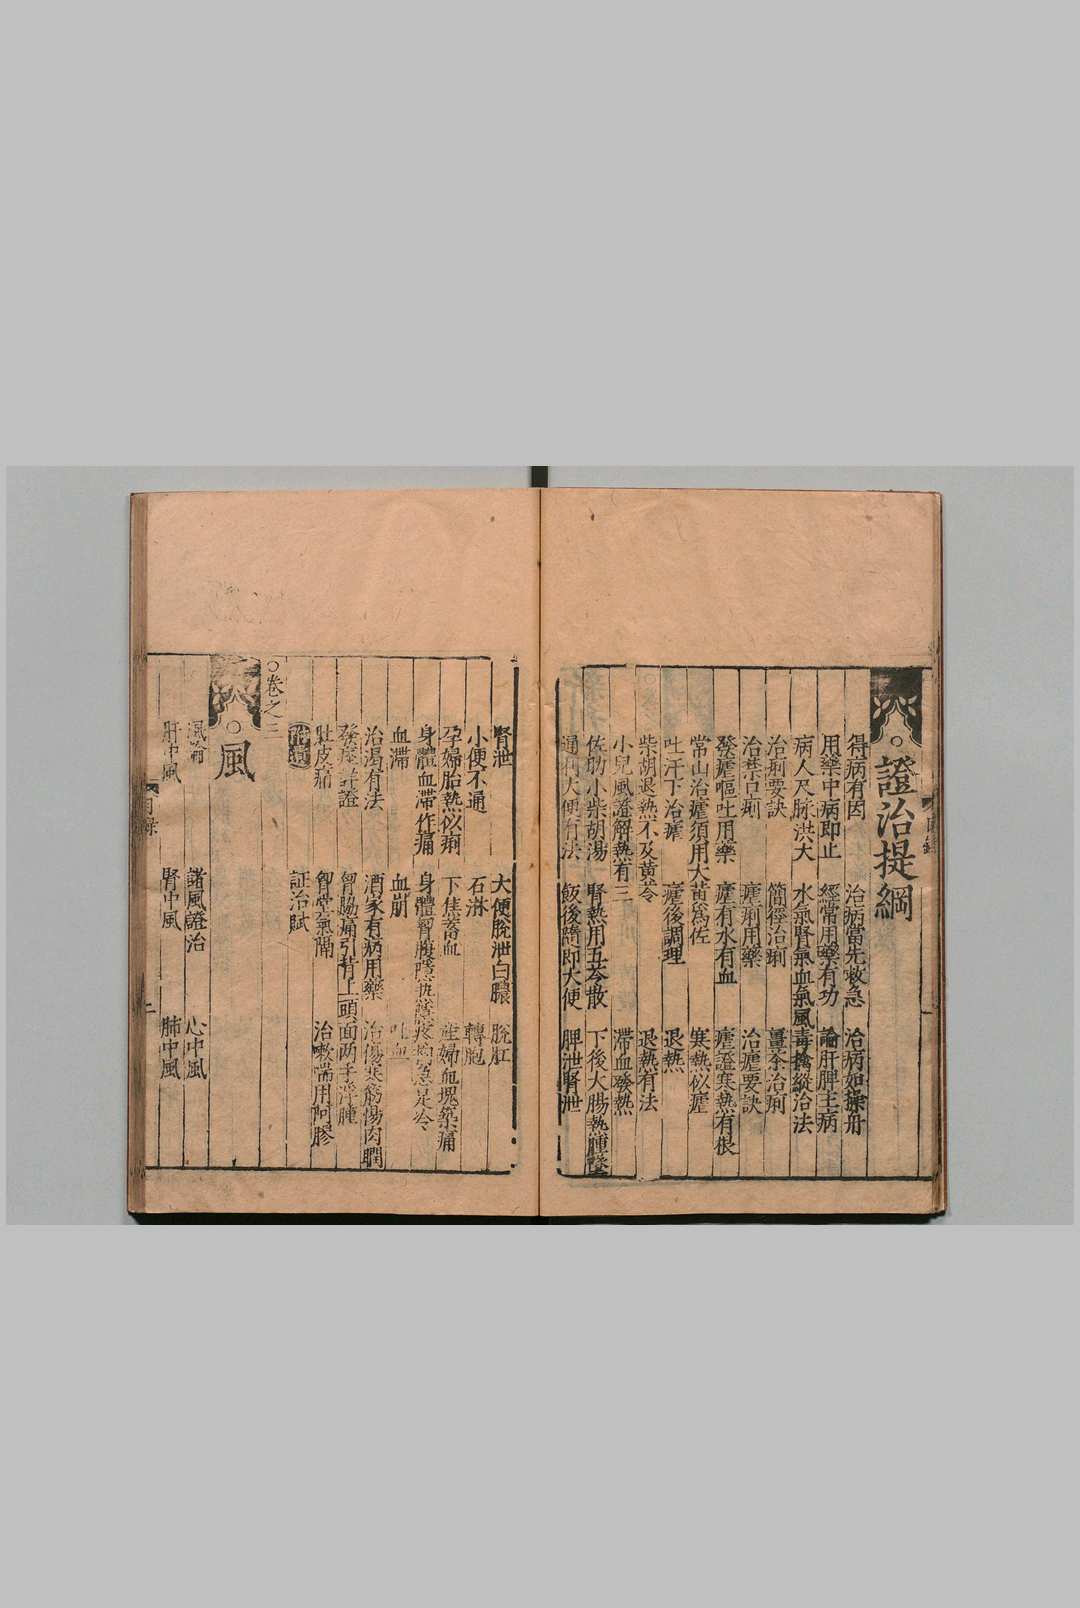 ○證治提綱
得病有因 治病當先救急 治病如操舟
用藥中病即止 經常用藥有功 論肝脾主病
病人尺脉洪大 水氣腎氣血氣風毒擒縱治法
治痢要訣 簡徑治痢 薑茶治痢
治禁口痢 瘧痢用藥 治瘧要訣
發瘧嘔吐用藥 瘧有水有血 瘧證寒熱有根
常山治瘧須用大黃爲佐 寒熱似瘧
吐汗下治瘧 瘧後調理 退熱
柴胡退熱不及黃芩 退熱有法
小兒風證解熱有三 滯血發熱
佐助小柴胡湯 腎熱用五苓散 下後大腸熱腫
通利大便有法 飯後隨即大便 脾泄腎泄
腎泄 大便脫泄白膿 脫肛
小便不通 石淋 轉胞
孕婦胎熱似痢 下焦蓄血 産婦血塊築痛
身體血滯作痛 身體胷腹隱
血滯 血崩 吐血
治渴有法 酒家有病用藥 治傷寒筋惕肉瞤
胷脇痛引背上頭面两手浮腫
肚皮痛 胷堂氣隔 治嗽喘用阿膠
証治賦
○卷之三
○風
風論 諸風證治 心中風
肝中風 腎中風 肺中風
目録